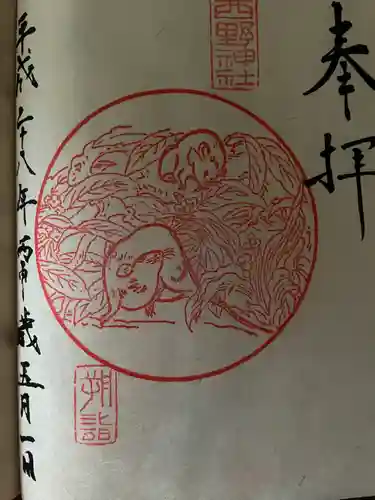 奉拝
西野神社
朔詣
平成二十八年丙申歳五月一日